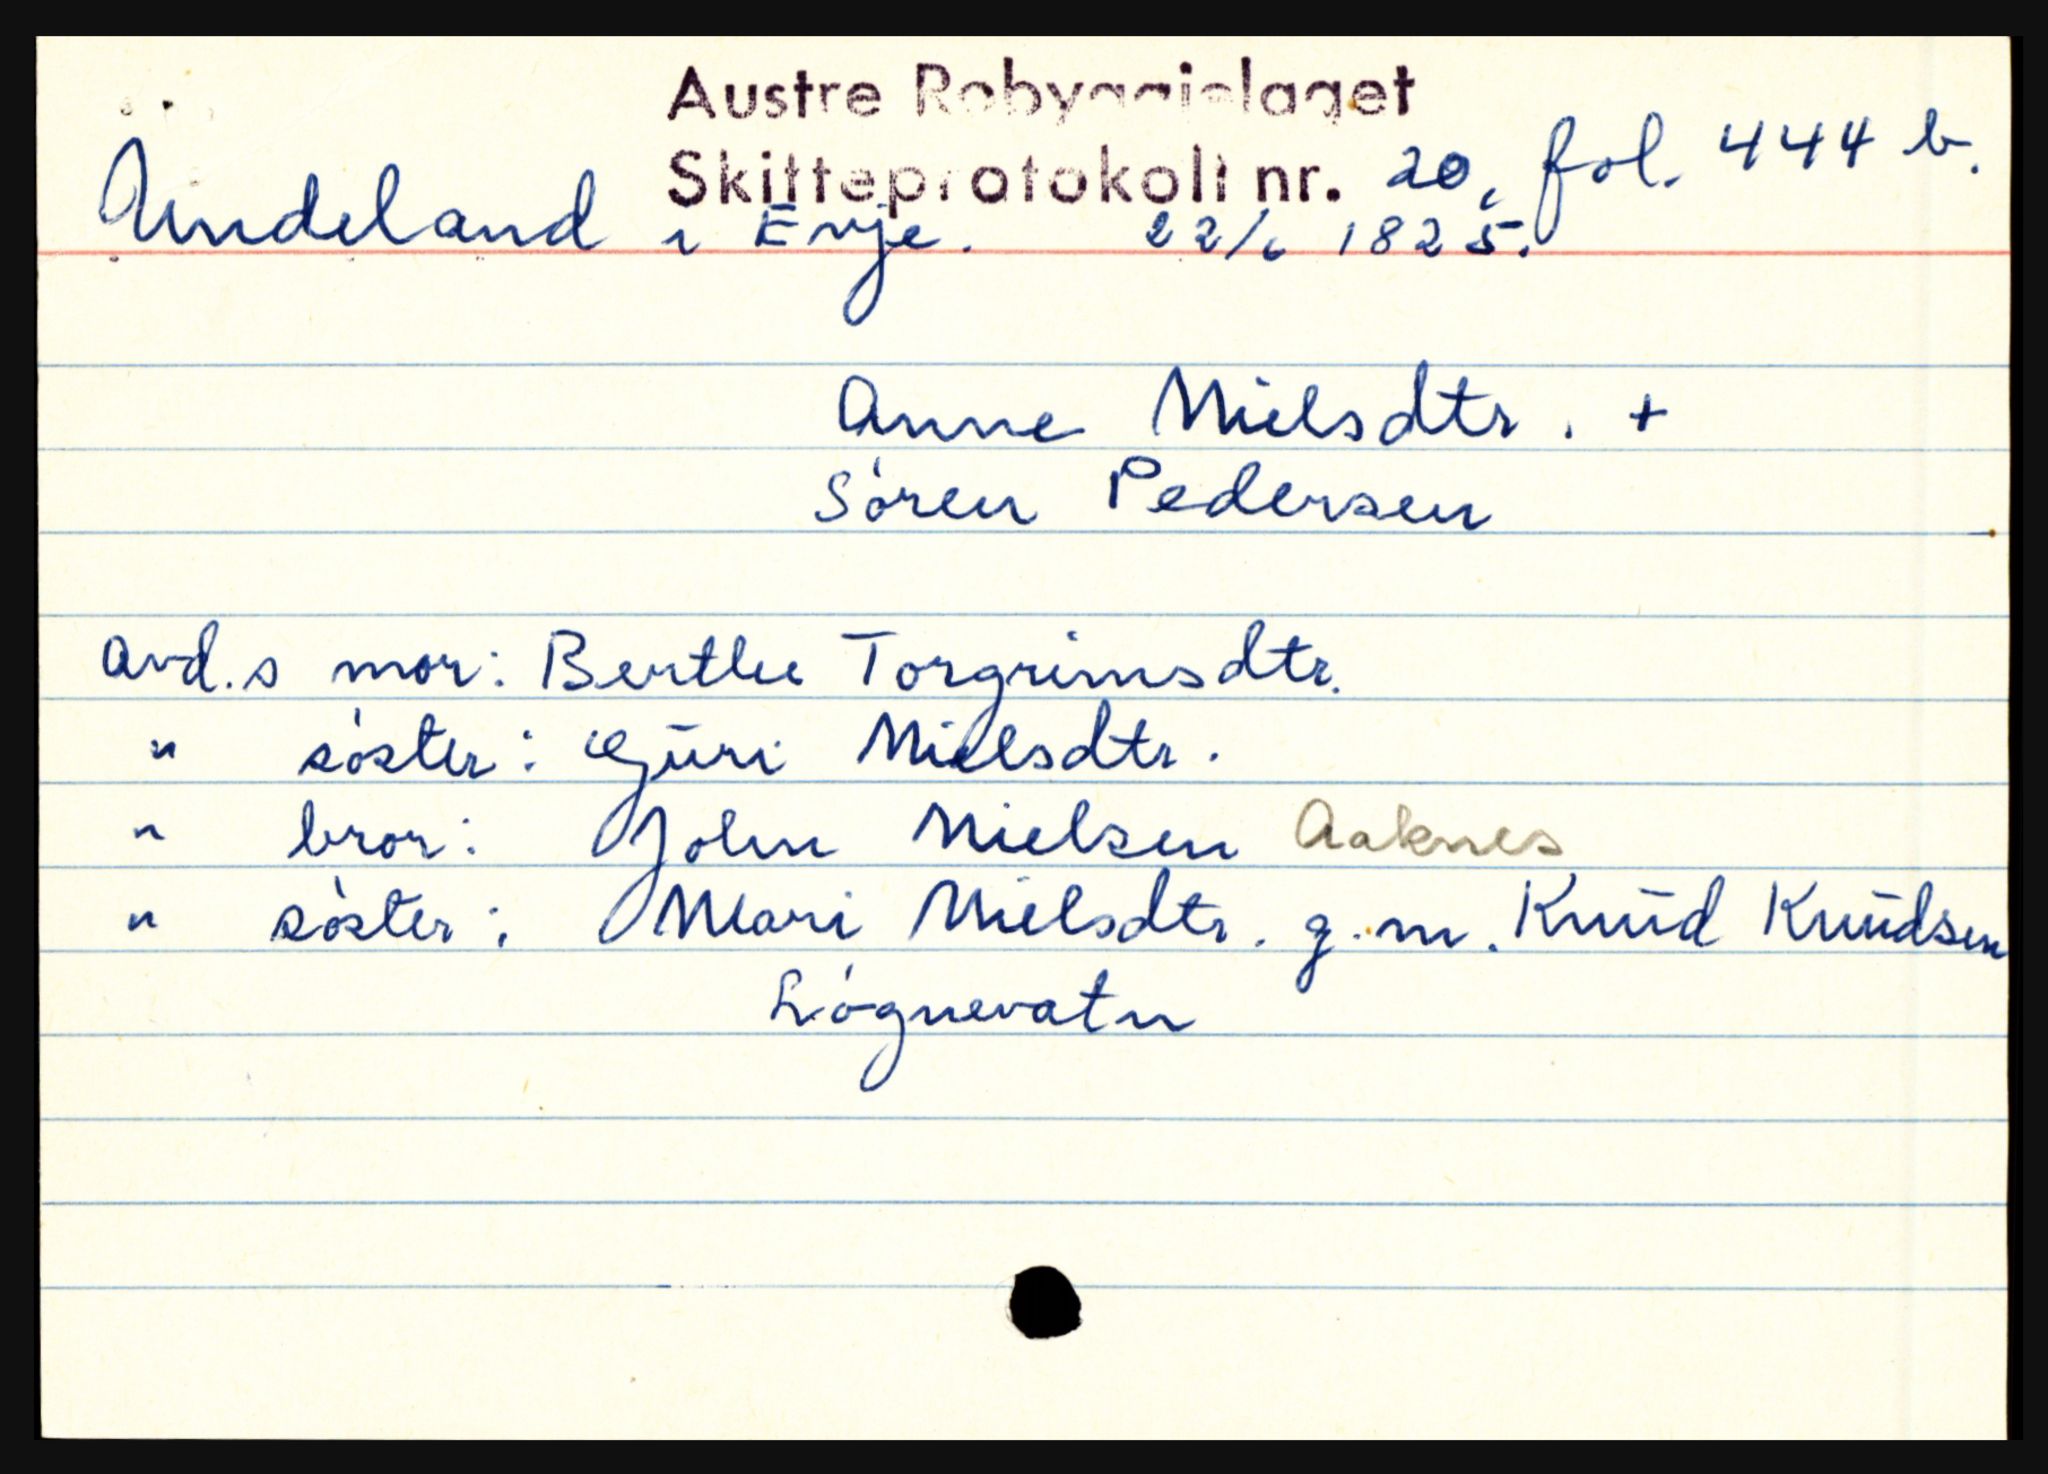 Austre Robyggjelaget
Skifteprotokoll nr. 20, fol. 444 b.
Aundeland i Evje. 22/6 1825.
Anne Nielsdtr. +
Sören Pedersen
avd.s mor: Berthe Torgrimsdtr.
" söster: Guri Nielsdtr.
" bror: John Nielsen Aaknes
" söster: Mari Nielsdtr. g.m. Knud Knudsen
Lögnevatn